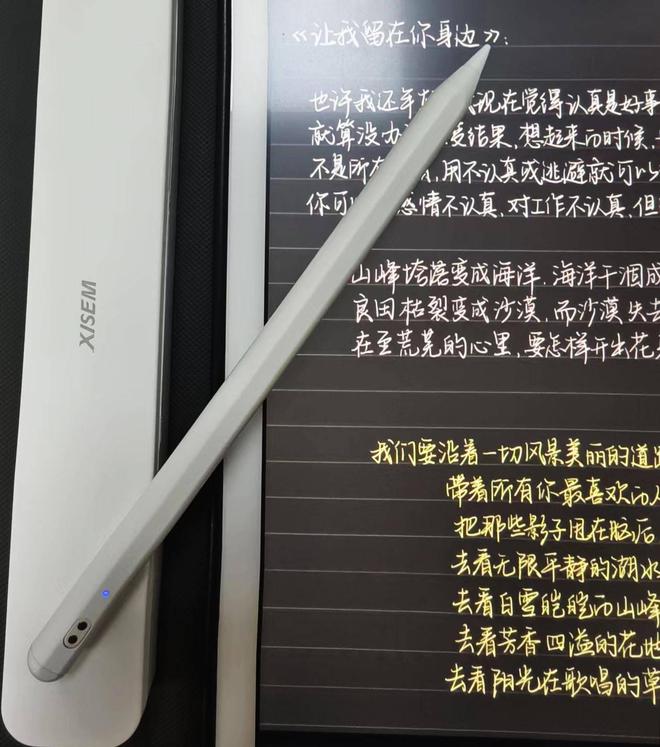 XISEM
《让我留在你身边》:
也许我还年 现在觉得认真是好事
就算没办 结果,想起来的时候,
不是所 ,用不认真或逃避就可以
你可 感情不认真,对工作不认真,但
山峰垮落变成海洋,海洋干涸成
良田枯裂变成沙漠,而沙漠失去
在至荒芜的心里,要怎样开出花
我们要沿着一切风景美丽的道
带着所有你最喜欢的
把那些影子甩在脑后
去看无限平静的湖水
去看白雪皑皑的山峰
去看芳香四溢的花
去看阳光在歌唱的草